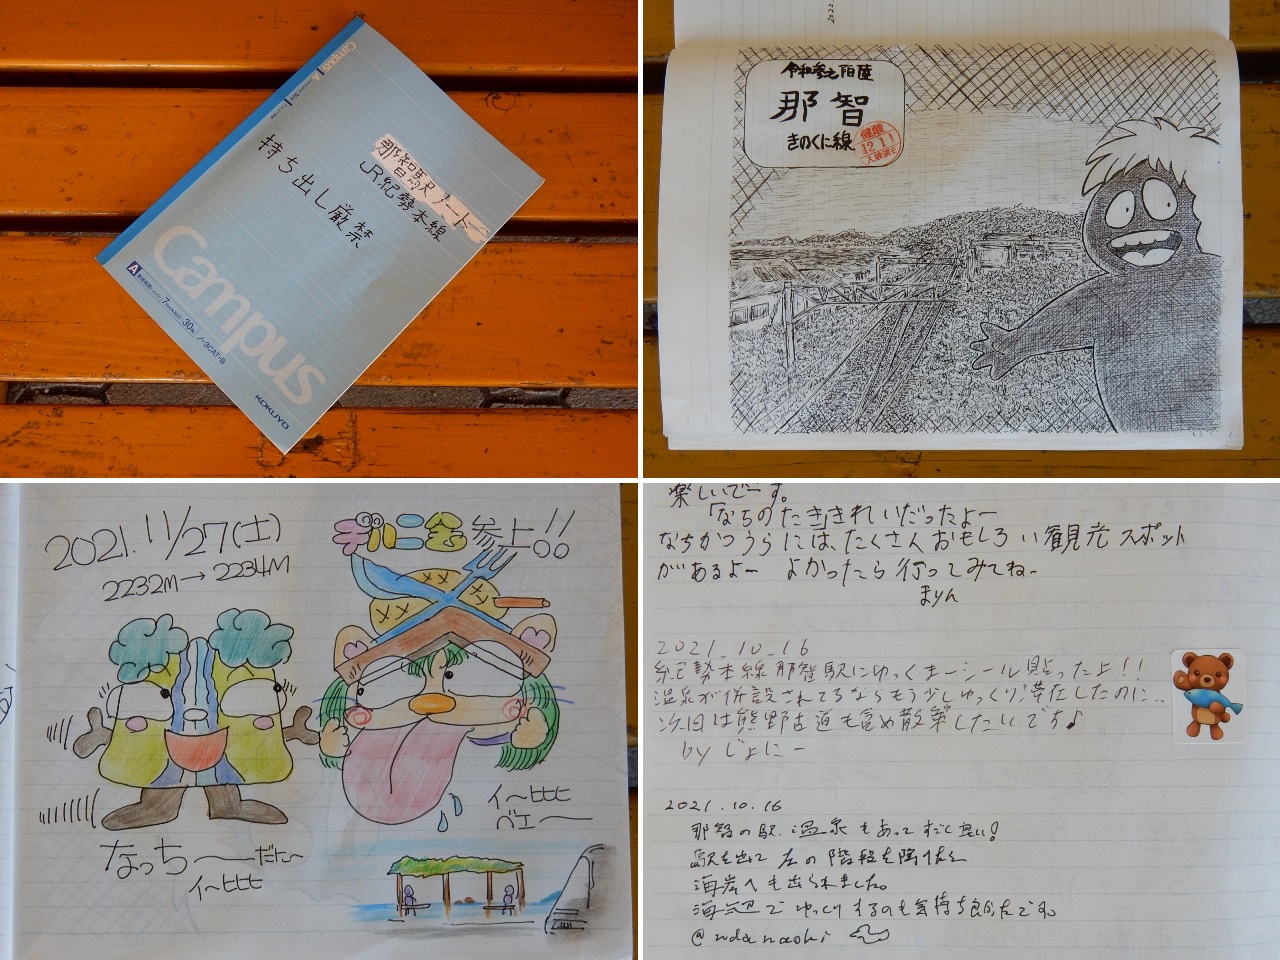 Campus
那智駅ノート
JR紀勢本線
持ち出し厳禁
Campus
A
7mm
30枚 ノ-3CAT-B
KOKUYO
那智
きのくに線
12.1
2021.11/27(土)
2232M→2234M
参上!!
なっち〜だた〜
イ〜ヒヒヒ
イ〜ヒヒヒ
ベエ〜
楽しいでーす。
「なちのたき」きれいだったよー
なちかつうらには、たくさんおもしろい観光スポット
があるよー よかったら行ってみてね。
まりん
2021.10.16
紀勢本線那智駅にゆっくまーシール貼ったよ!!
温泉が併設されてるならもう少しゆっくり滞在したのに…
次回は熊野古道も含め散策したいです♪
by じょにー
2021.10.16
那智の駅、温泉もあってすごく良い!
駅を出て左の階段を降りたら
海岸へも出られました。
海辺でゆっくりするのも気持ち良かったです。